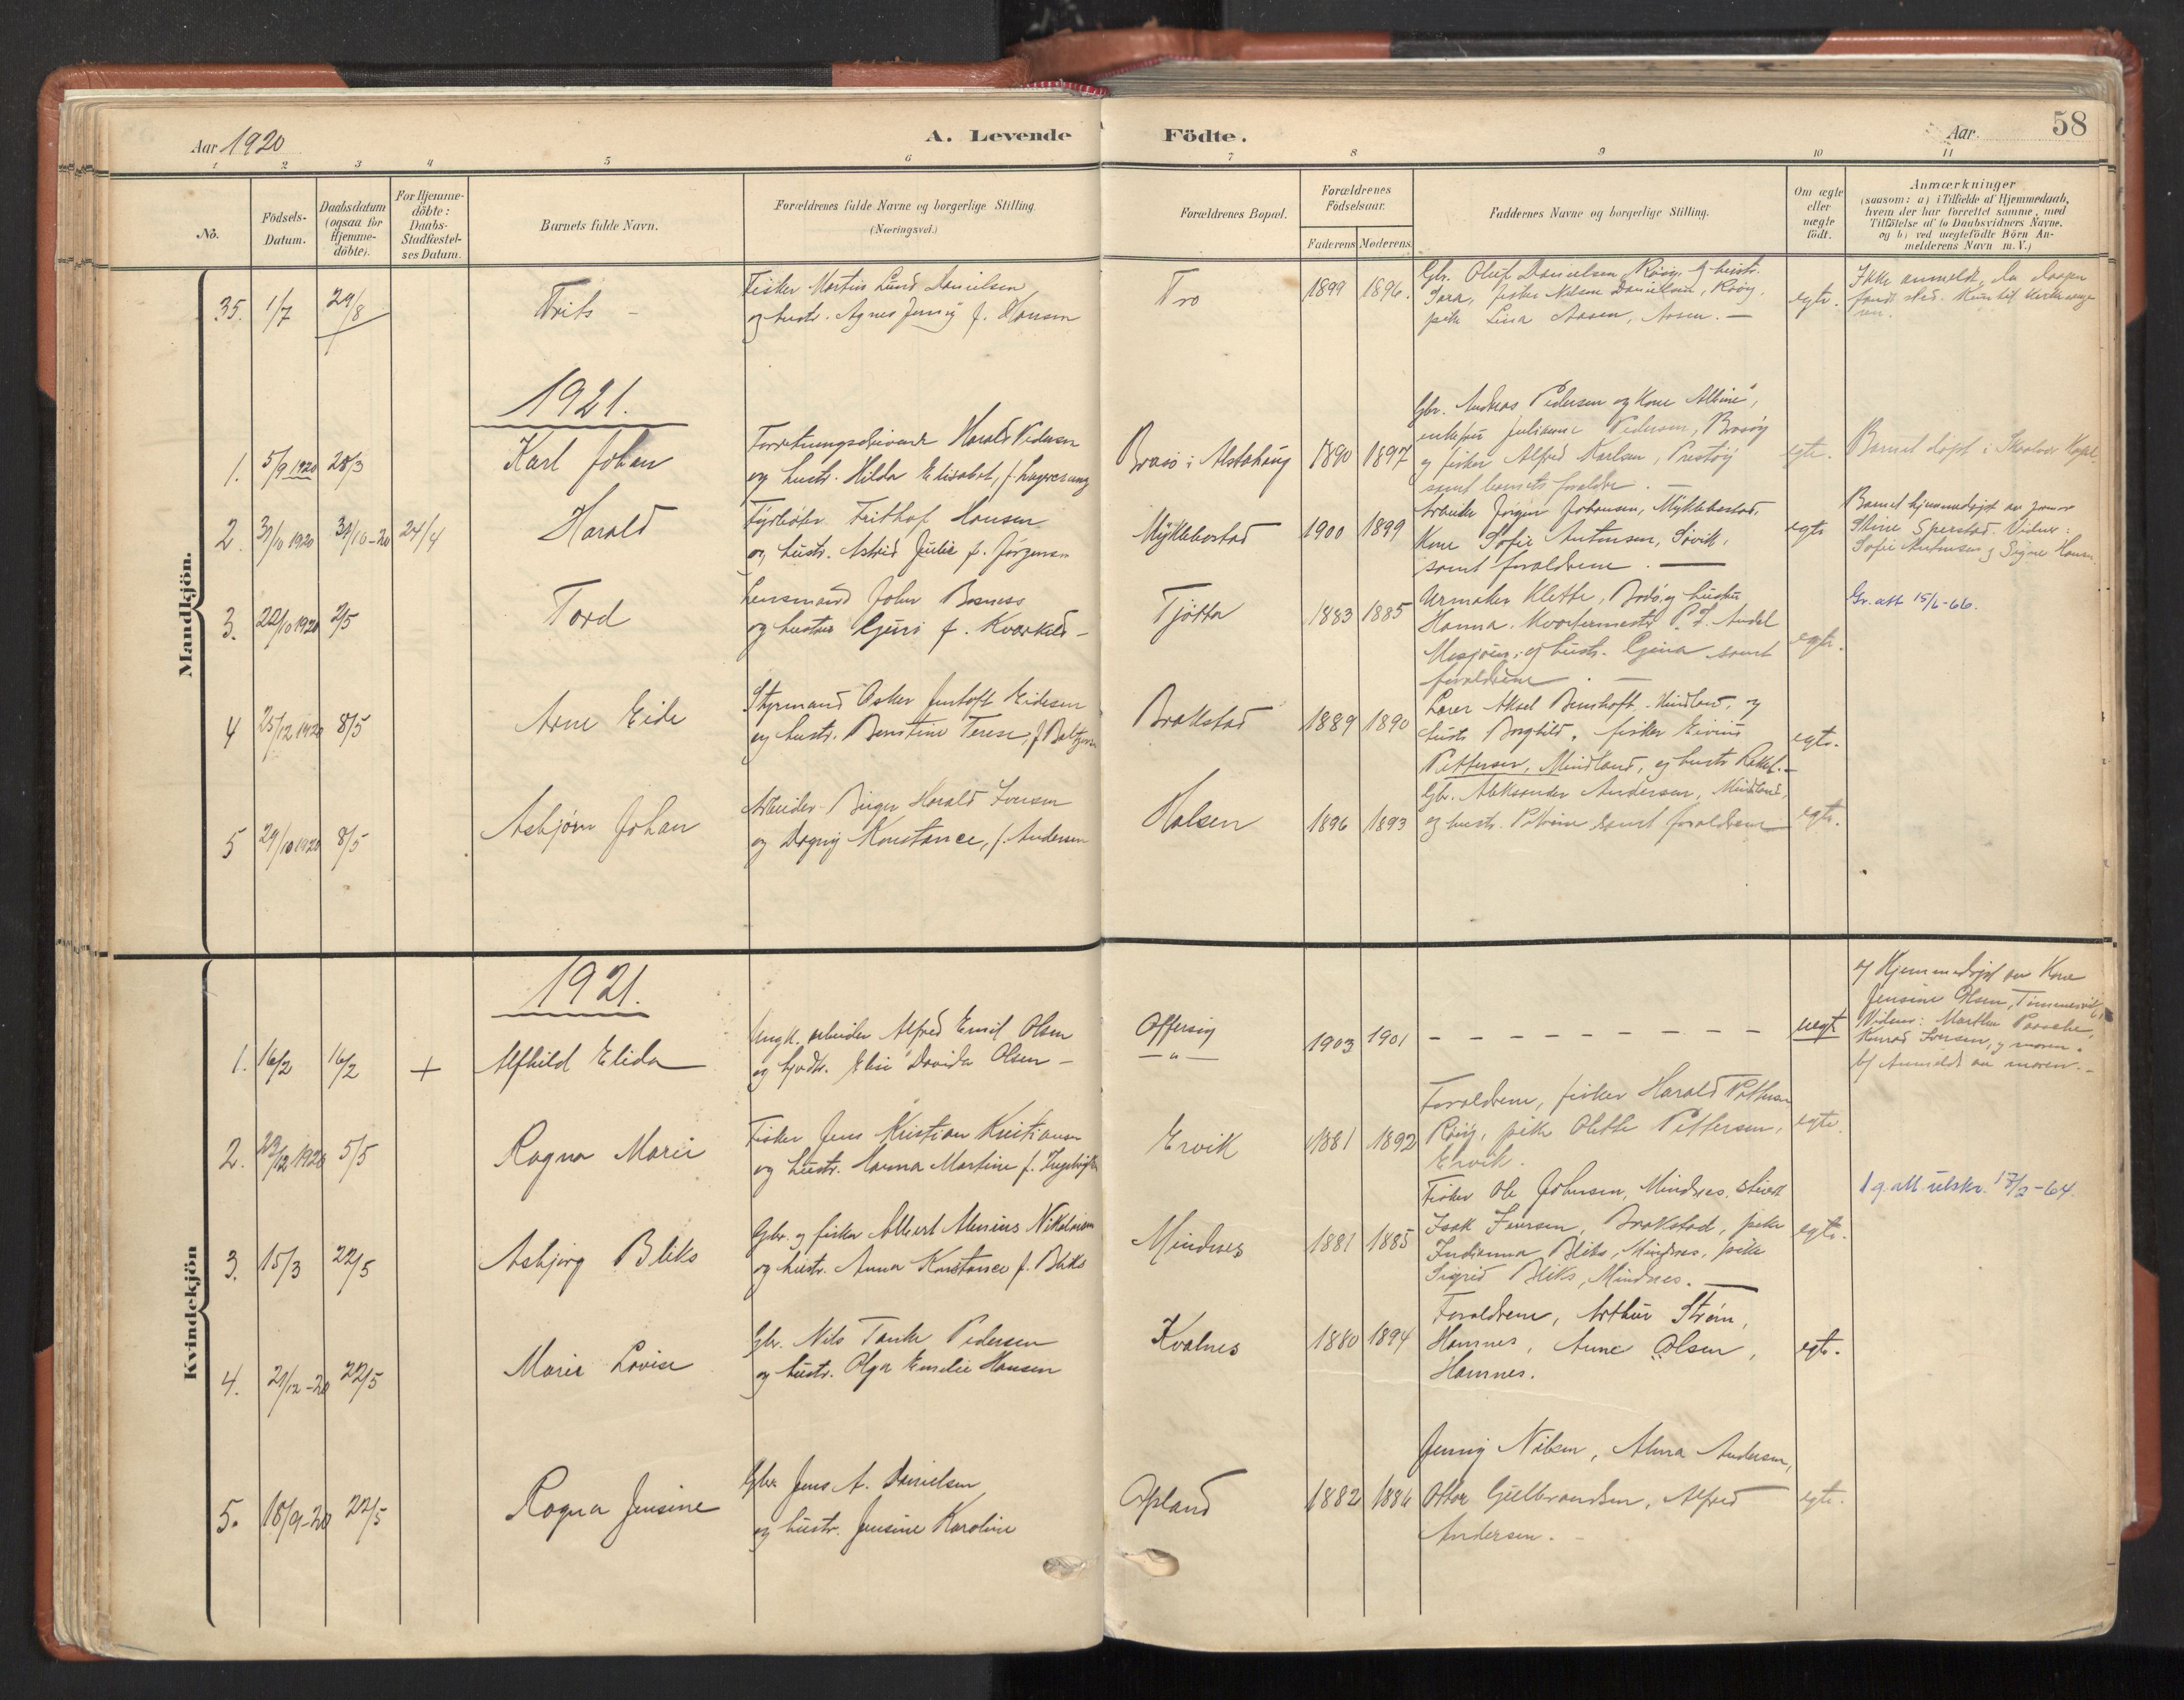 Aar 1920
A. Levende Födte.
Aar
58
1 2 3 4 5 6 7 8 9 10 11
No.
Födsels-Datum.
Daabsdatum (ogsaa for Hjemme-döbte).
For Hjemme-döbte: Daabs-Stadfæstel-ses Datum.
Barnets fulde Navn.
Forældrenes fulde Navne og borgerlige Stilling
(Næringsvei.)
Forældrenes Bopæl.
Forældrenes Födselsaar.
Faderens Moderens
Faddernes Navne og borgerlige Stilling.
Om ægte eller uægte födt.
Anmærkninger
(saasom: a) i Tilfælde af Hjemmedaab,
hvem der har forrettet samme, med
Tilföielse af to Daabsvidners Navne.
og b) ved uægtefödte Börn An-
melderens Navn m. V.)
Mandkjön.
35. 1/7 29/8 Frits -
Fisker Martin Lund Danielsen
og hustr. Agnes Jensig f. Hansen
Tro
1899 1896.
Gbr. Oluf Danielsen, Röög, og hustr.
Sara, fisker Nelson Danielsen, Röög,
pike Lina Aasen, Aasen. -
egte.
Ikke anmeldt, da daapen
fandt sted.
1921.
1. 5/9 1920 28/3 Karl Johan
Forretningsdrivende Harald Pedersen
og hustr. Hilda Elisabet, f.
Brasö i Alstahaug
1890 1897
Gbr. Andreas Pedersen og Kone Albine,
enkefru Julianne Pedersen, Brasöy
og fisker Alfred Karlsen, Prestöy
samt barnets foraldre. -
egte.
Barnet döpt i Kapel.
2. 31/10 1920 31/10-20 24/4 Harald
Fyrböter Frithof Hansen
og hustr. Astrid Julie f. Jörgensen
Myklebostad
1900 1899
Arbeider Jörgen Johansen, Myklebostad,
Kone Sofie Antonsen, Sövik,
samt foraldrene. -
egte
Barnet hjemmedöpt av
Stine Sperstad. Vidner:
Sofie Antonsen og Signe Hansen
3. 22/10 1920 2/5 Tord
Lensmand John Bosness
og hustru Guri f. Kvarkild -
Tjötta
1883 1885
Urmaker Klette, Bodö, og hustru
Hanna. Kvartermester P. J. Andal
Mosjöen, og hustr. Gina samt
foraldrene. -
egte.
Gr. att 15/6-66.
4 25/12 1920 8/5 Arne Eide
Styrmand Oskar Jentoft Eidesen
og hustr. Berntine Terese, f. Baltzersen
Brakstad
1889 1890
Lærer Aksel Benshoft, Mindland, og
hustr. Borghild, fisker Eivind
Pettersen, Mindland, og hustr. Rakel. -
egte.
5 29/10 1920 8/5 Asbjörn Johan
Arbeider Birger Harald Iversen
og Dagny Konstance, f. Andersen
Halsen
1896 1893
Gbr. Aleksander Andersen, Mindland,
og hustr. Petrine samt foraldrene
egte.
Kvindekjön
1921.
1. 16/2 16/2 + Alfhild Elida
Ungk. arbeider Alfred Emil Olsen
og Elise Davida Olsen -
Offersöy
- " -
1903 1901
- - - - - - - - -
uegt
a) Hjemmedöpt av Kone
Jensine Olsen,
Vidner: Marthe Paasche,
Konrad Iversen, og moren.
b) Anmeldt av moren. -
2. 12/12 1920 5/5 Ragna Marie
Fisker Jens Kristian Kristiansen
og hustr. Hanna Martine f.
Ervik
1881 1892
Foraldrene, fisker Harald Pettersen
Röög, pike Olette Pettersen,
Ervik.
egte.
1 g. att utskr. 17/2-64.
3. 15/3 22/5 Asbjörg Bliks
Gbr. og fisker Albert Menius Nikolaisen
og hustr. Anna Konstance f. Bliks
Mindnes
1881 1885
Fisker Ole Johnsen, Mindnes,
Isak Iversen, Brakstad, pike
Indianna Bliks, Mindnes, pike
Sigrid Bliks, Mindnes. -
egte.
4. 21/12-20 22/5 Marie Lovise
Gbr. Nils Tanke Pedersen
og hustr. Olga Emelie Hansen
Kvalnes
1880 1894
Foraldrene, Arthur Ström,
Hamnes, Anne Olsen,
Hamnes.
egte.
5. 18/9-20 22/5 Ragna Jensine
Gbr Jens A. Danielsen
og hustr. Jensine Karoline
Opland
1882 1886
Jenny Nilsen, Alma Andersen,
Ottar Gulbrandsen, Alfred
Andersen. -
egte.